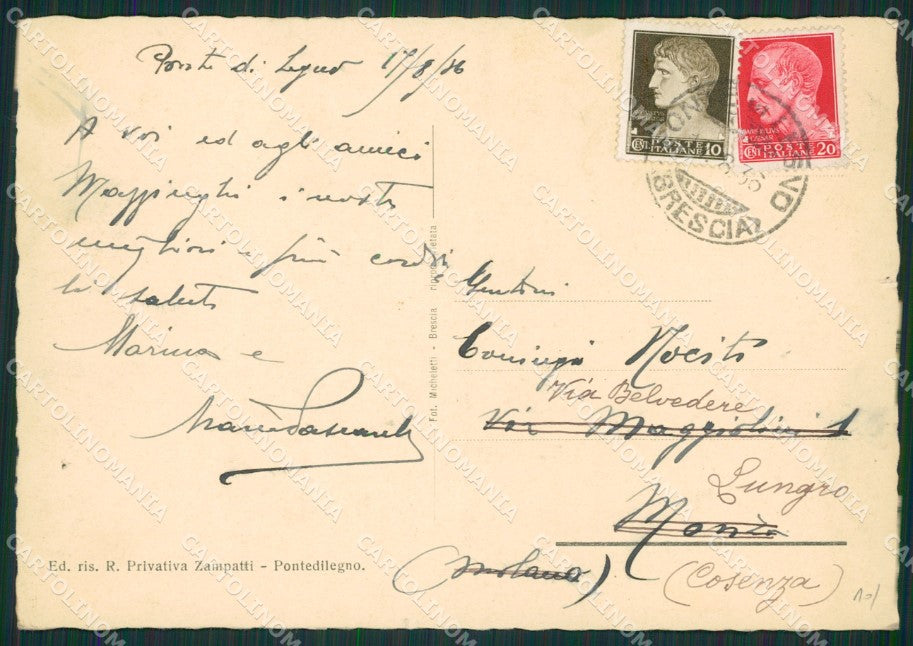 Ponte di Legno 17/8/36
A voi ed agli amici
i nostri
migliori e più cordia
li saluti
Marina e
POSTE ITALIANE
CENT 10
CAESAR
POSTE ITALIANE
CENT 20
BRESCIA
Gentari
Coniugi Nociti
Via Belvedere
Via Maggiolini 1
Lungro
Monza
(Milano)
(Cosenza)
Fot. Micheletti - Brescia
Ed. ris. R. Privativa Zampatti - Pontedilegno.
CARTOLINOMANIA